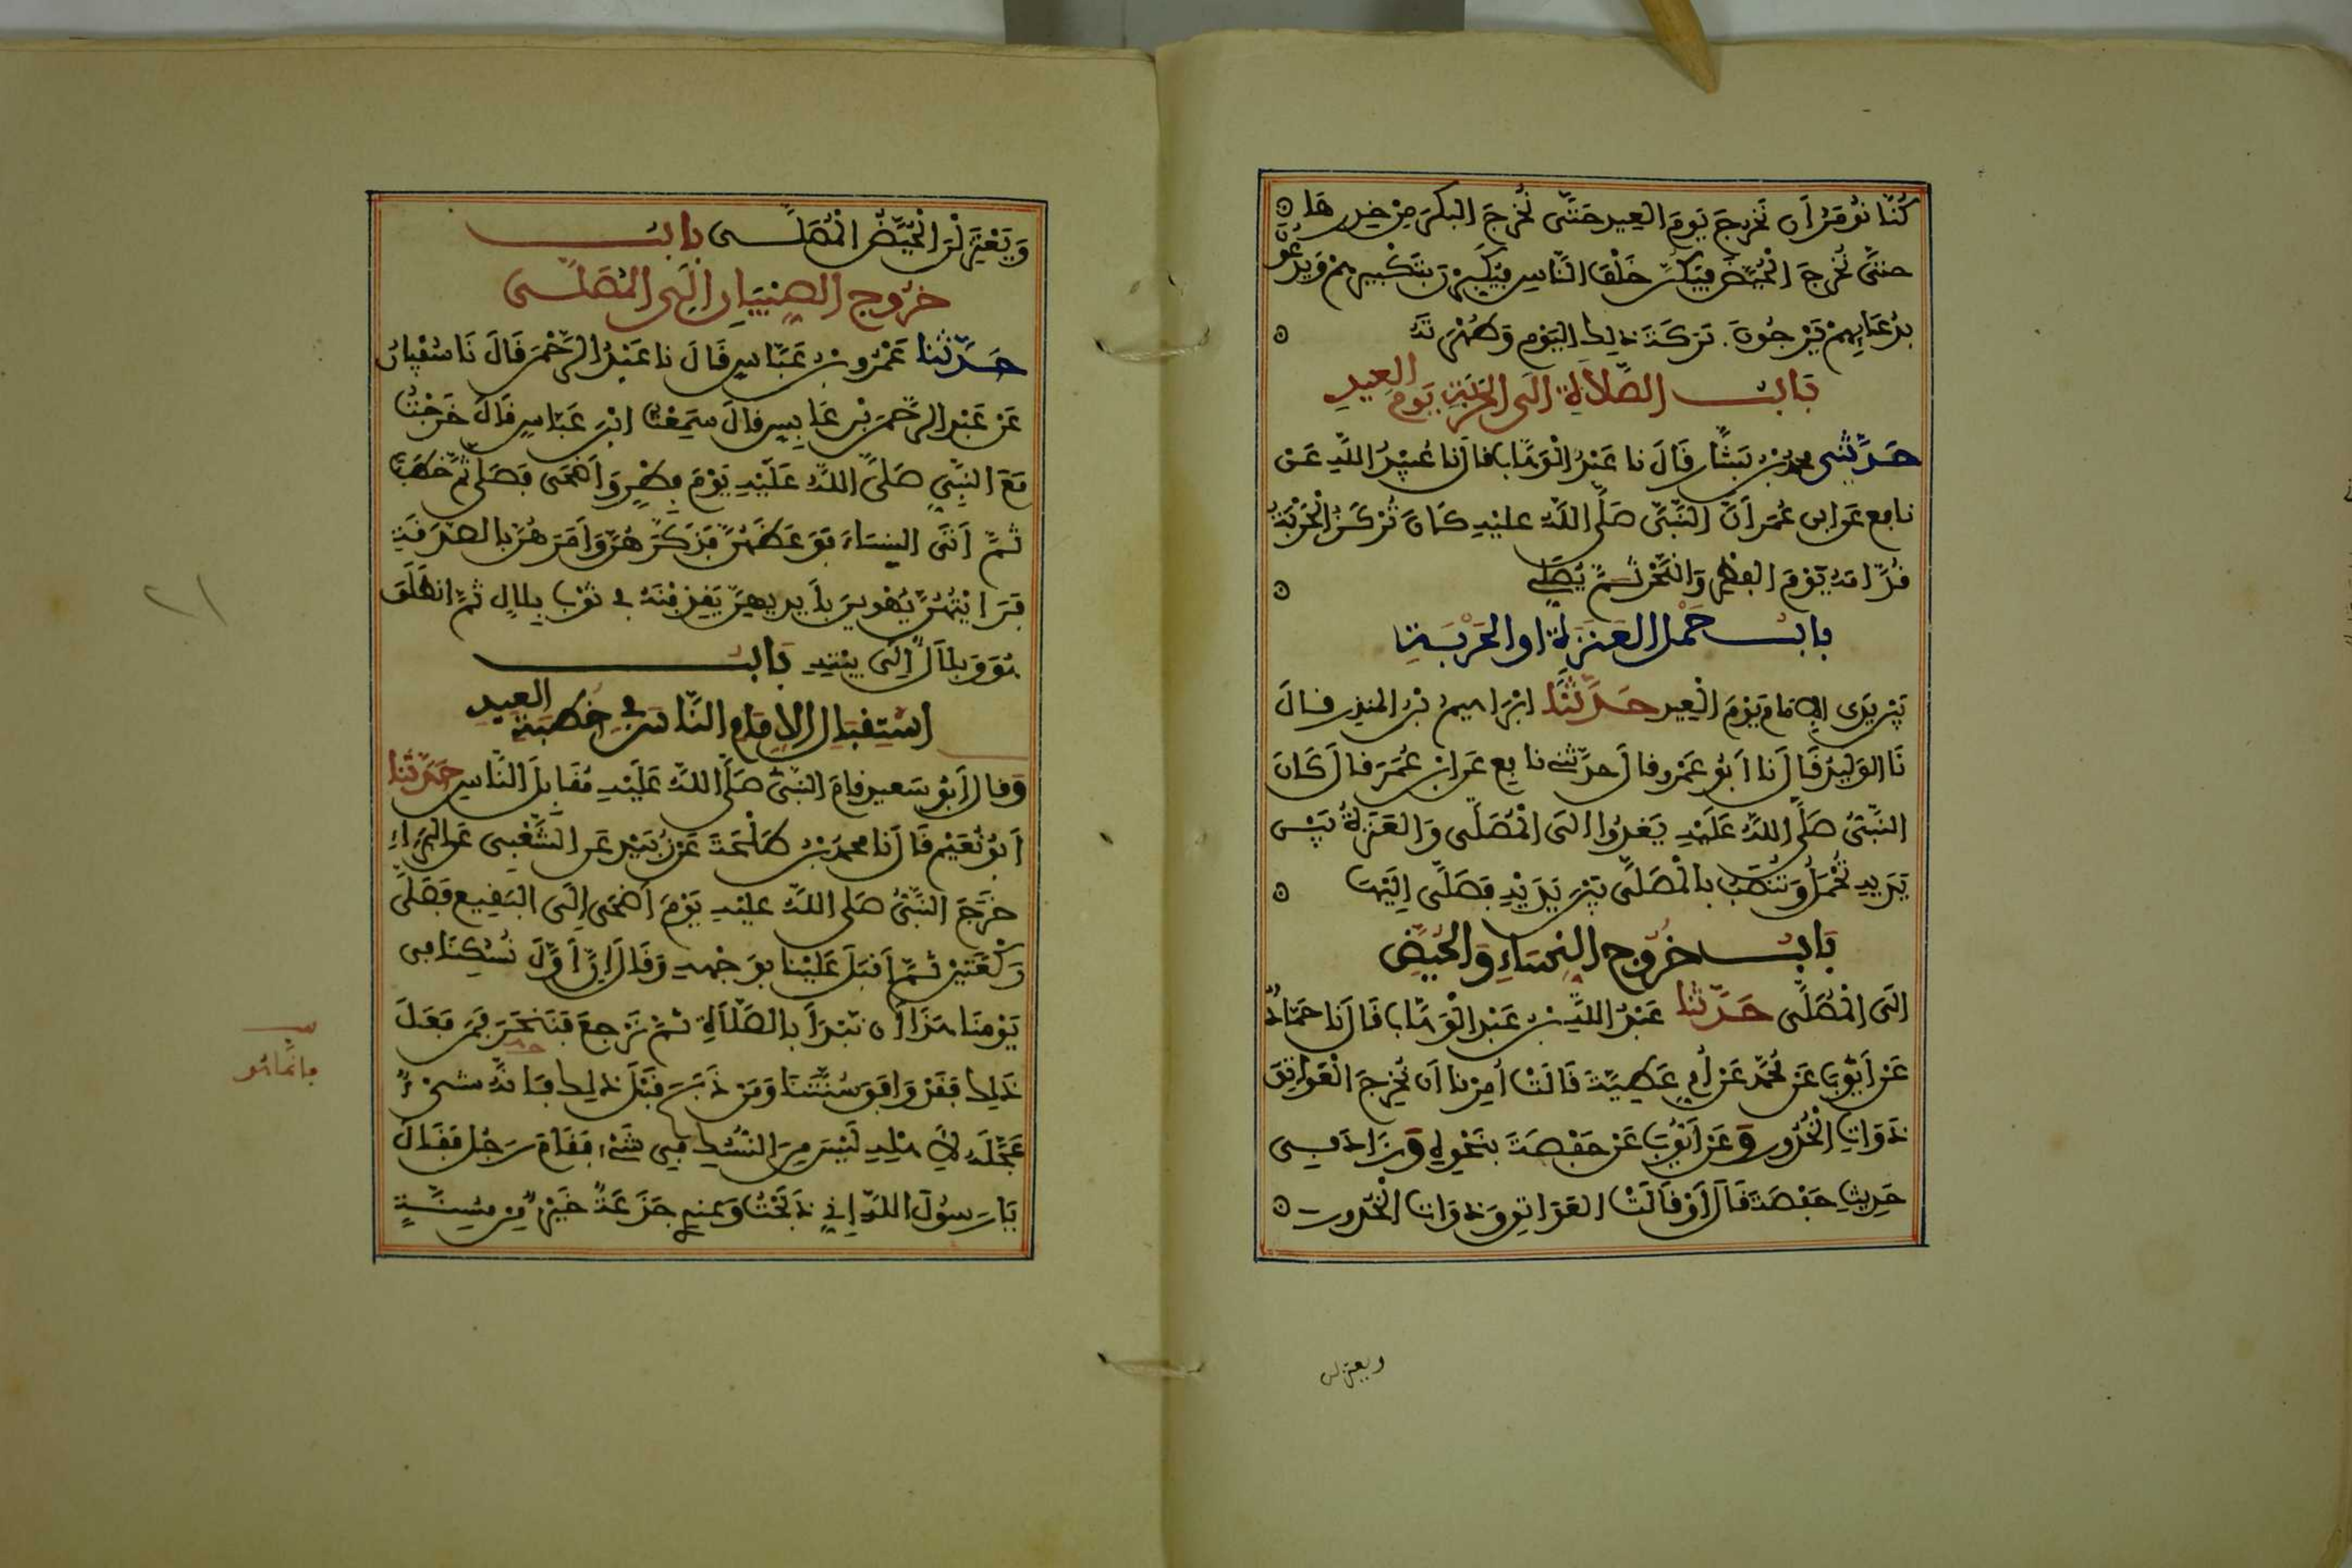 كُنَّا نُومَرُ أَن نَخْرُجَ يَومَ العِيدِ حَتَّى نُخْرِجَ البِكْرَ مِنْ خِدْرِهَا
حتَّى نُخْرِجَ الْحُيَّضَ فَيَكُنَّ خَلْفَ النَّاسِ فَيُكَبِّرْنَ بِتَكْبِيرِهِمْ وَيَدْعُونَ
بِدُعَايِهِمْ يَرْجُونَ بَرَكَةَ ذَلِكَ اليَوْمِ وَطُهْرَتَهُ
بَابُ الصَّلَاةِ إلَى الحَرْبَةِ يَوْمَ العِيدِ
حَدَّثَنِي محمد بْنُ بَشَّارٍ قَالَ نا عَبْدُ الْوَهَّابِ قَالَ نا عُبَيْدُ اللَّهِ عَنْ
نافع عَنِ ابن عُمَرَ أَنَّ النَّبِيَّ صَلَّى اللَّهُ عليْهِ كَانَ تُرْكَزُ الْحَرْبَةُ
قُدَّامَهُ يَوْمَ الفِطْرِ وَالنَّحْرِ ثُمَّ يُصَلِّي
بابُ حَمْلِ العَنَزَةِ او الحَرْبَةِ
بَيْنَ يَدَى الإِمَامِ يَوْمَ الْعِيدِ حَدَّثَنَا ابْرَاهِيمُ بْنُ المنذِرِ قَالَ
نَا الوَلِيدُ قَالَ نا أَبُو عَمْرٍو قالَ حدَّثَنِي نافِع عَنِ ابْنِ عُمَرَ قالَ كَانَ
النَّبِيُّ صَلَّى اللَّهُ عَلَيْهِ يَغْدُوا إلَى الْمُصَلَّى وَالعَنَزَةُ بَيْنَ
يَدَيْهِ تُحْمَلُ وَتُنْصَبُ بِالْمُصَلَّى بَيْنَ يَدَيْهِ فَصَلَّى إِلَيْهَا
بَابُ خُرُوجِ النِّسَاءِ وَالحُيَّضِ
الَى الْمُصَلَّى حَدَّثَنَا عَبْدُ اللَّهِ بْنُ عَبْدِ الْوَهَّابِ قَالَ نَا حَمَّادٌ
عَنْ أَيُّوبَ عَنْ مُحَمَّدٍ عَنْ أُمِّ عَطِيَّةَ قَالَتْ أُمِرْنا أَن نُخْرِجَ الْعَوَاتِقَ
ذَوَاتِ الْخُدُورِ وَعَنْ أَيُّوبَ عَنْ حَفْصَةَ بِنَحْوِهِ وَزَادَ فِي
حَدِيثِ حَفْصَةَ قَالَ أَوْ قَالَتْ العَوَاتِقَ وَذَوَاتِ الْخُدُورِ
ويعتزلن
وَيَعْتَزِلْنَ الْحُيَّضُ الْمُصَلَّى بابُ
خُرُوجِ الصِّبْيَانِ إِلَى المُصَلَّى
حَدَّثَنَا عَمْرُو بْنُ عَبَّاسٍ قَالَ نا عَبْدُ الرَّحْمَنِ قَالَ نَا سُفْيَانُ
عَنْ عَبْدِ الرَّحْمَنِ بْنِ عَابِسٍ قالَ سَمِعْتُ ابْنَ عَبَّاسٍ قَالَ خَرَجْتُ
مَعَ النَّبِيِّ صَلَّى اللَّهُ عَلَيْهِ يَوْمَ فِطْرٍ وَأَضْحَى فَصَلَّى ثُمَّ خَطَبَ
ثُمَّ أَتَى النِّسَاءَ فَوَعَظَهُنَّ فَذَكَّرَهُنَّ وَأَمَرَهُنَّ بِالصَّدَقَةِ
فَرَأَيْتُهُنَّ يُهْوِينَ بِأَيْدِيهِنَّ يَقْذِفْنَهُ فِي ثَوْبِ بِلالٍ ثُمَّ انطَلَقَ
هُوَ وَبِلَالٌ إِلَى بَيْتِهِ بَابُ
اسْتِقْبَالِ الإِمَامِ النَّاسَ فِي خُطْبَةِ العِيدِ
وَقالَ أَبُو سَعِيدٍ قامَ النَّبِيُّ صَلَّى اللَّهُ عَلَيْهِ مُقَابِلَ النَّاسِ حَدَّثَنا
أَبُو نُعَيْمٍ قَالَ نَا محمد بْنُ طَلْحَةَ عَنْ زُبَيْدٍ عَنِ الشَّعْبِي عَنِ البَرَاءِ
خَرَجَ النَّبِيُّ صَلى اللَّهُ عليْهِ يَوْمَ أَضْحَى إِلَى البَقِيعِ فَصَلَّى
رَكْعَتَيْنِ ثُمَّ أَقبَلَ عَلَيْنا بِوَجْهِهِ وَقَالَ إِنَّ أَوَّلَ نُسُكِنَا فِي
يَوْمِنَا هَذَا أَن نَبْدَأَ بالصَّلَاةِ ثُمَّ نَرْجِعَ فَنَنْحَرَ فَمَن فَعَلَ
ذَلِكَ فَقَدْ وَافَقَ سُنَّتَنَا وَمَن ذَبَحَ قَبْلَ ذَلِكَ فَإِنَّهُ شَيْءٌ
عَجَّلَهُ لِأَهْلِهِ لَيْسَ مِنَ النُّسُكِ فِي شَيْءٍ فَقَامَ رَجُلٌ فَقَالَ
يَا رَسُولَ اللَّهِ إِنِّي ذَبَحْتُ وَعِندِي جَذَعَةٌ خَيْرٌ مِّن مُّسِنَّةٍ
فإنما هو
٢١